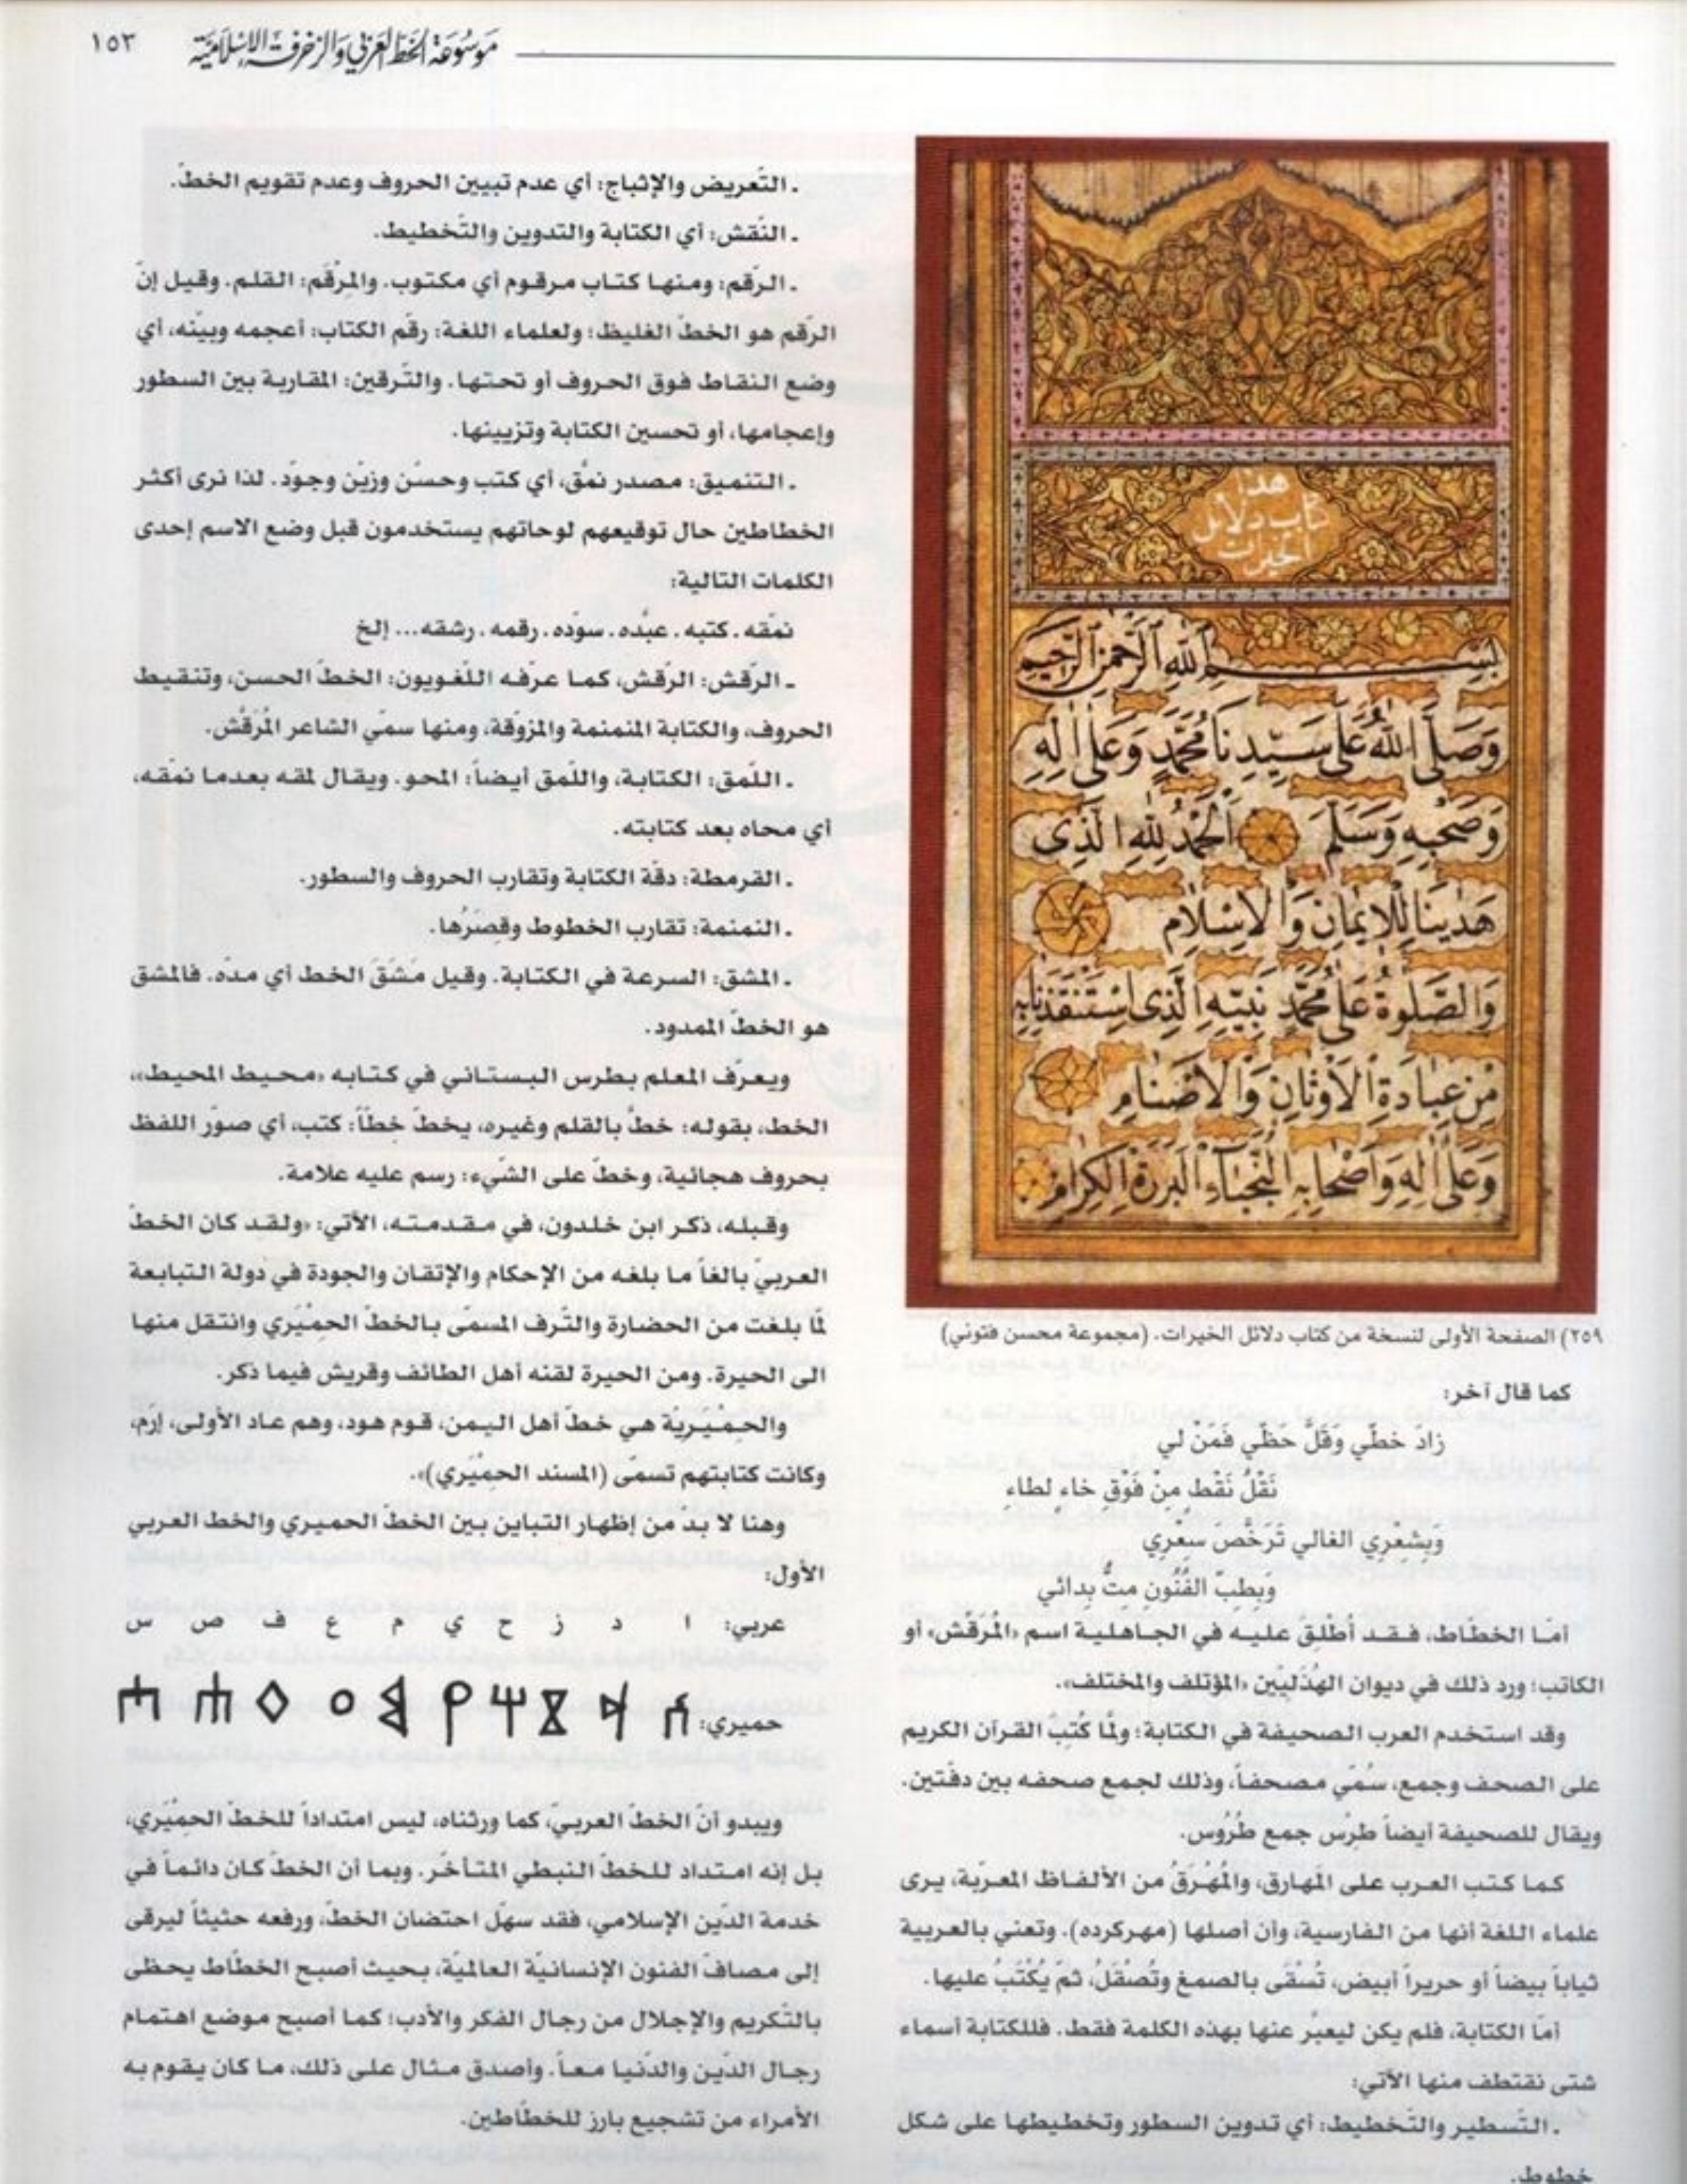 موسوعة الخط العربي والزخرفة الإسلامية
١٥٣
هذا
كتاب دلائل
الخيرات
بسم الله الرحمن الرحيم
وَصَلَّى اللهُ عَلَى سَيِّدِنَا مُحَمَّدٍ وَعَلَى اٰلِهِ
وَصَحْبِهِ وَسَلَّمَ اَلْحَمْدُ لِلّٰهِ الَّذِى
هَدٰينَا لِلْاِيمَانِ وَالْاِسْلَامِ
وَالصَّلٰوةُ عَلَى مُحَمَّدٍ نَبِيِّهِ الَّذِى اسْتَنْقَذَنَا بِهِ
مِنْ عِبَادَةِ الْاَوْثَانِ وَالْاَصْنَامِ
وَعَلَى اٰلِهِ وَاَصْحَابِهِ النُّجَبَاءِ الْبَرَرَةِ الْكِرَامِ
٢٥٩) الصفحة الأولى لنسخة من كتاب دلائل الخيرات. (مجموعة محسن فتوني)
كما قال آخر:
زادَ خطّي وَقَلَّ حَظّي فَمَنْ لي
نَقْلُ نَقْطٍ مِنْ فَوْقِ خاءٍ لطاءِ
وَبِشعْرِي الغالي تَرَخَّصَ سِعْرِي
وَبِطِبِّ الفُنُونِ مِتُّ بِدائي
أمّا الخطّاط، فـقـد أُطْلِقَ عليـه في الجـاهليـة اسم «المُرَقِّش» أو
الكاتب؛ ورد ذلك في ديوان الهُذَليّين «المؤتلف والمختلف».
وقد استخدم العرب الصحيفة في الكتابة؛ ولمّا كُتِبَ القرآن الكريم
على الصحف وجمع، سُمّي مصحفاً، وذلك لجمع صحفه بين دفّتين.
ويقال للصحيفة أيضاً طِرْس جمع طُرُوس.
كـمـا كتـب العـرب على المَهارق، والمُهْرَقُ من الألفـاظ المعرّبة، يـرى
علماء اللغة أنها من الفارسية، وأن أصلها (مهركرده). وتعني بالعربية
ثياباً بيضاً أو حريراً أبيض، تُسْقَى بالصمغ وتُصْقَلُ، ثمّ يُكْتَبُ عليها.
أمّا الكتابة، فلم يكن ليعبّر عنها بهذه الكلمة فقط. فللكتابة أسماء
شتى نقتطف منها الآتي:
. التّسطير والتّخطيط: أي تدوين السطور وتخطيطها على شكل
خطوط.
. التّعريض والإثباج: أي عدم تبيين الحروف وعدم تقويم الخطّ.
. النّقش: أي الكتابة والتدوين والتّخطيط.
. الرّقم: ومنهـا كتـاب مرقـوم أي مكتـوب. والمِرْقَم: القلـم. وقيـل إنّ
الرّقم هو الخطّ الغليظ؛ ولعلماء اللغة: رقّم الكتاب: أعجمه وبيّنه، أي
وضع النقـاط فوق الحروف أو تحتهـا. والتّرقين: المقاربة بين السطور
وإعجامها، أو تحسين الكتابة وتزيينها.
. التنميق: مصدر نمّق، أي كتب وحسّن وزيّن وجوّد. لذا نرى أكثر
الخطاطين حال توقيعهم لوحاتهم يستخدمون قبل وضع الاسم إحدى
الكلمات التالية:
نمّقه. كتبه. عبّده. سوّده. رقمه. رشقه... إلخ
ـ الرّقش: الرّقش، كمـا عرّفه اللّغـويون: الخطّ الحسن، وتنقـيط
الحروف، والكتابة المنمنمة والمزوّقة، ومنها سمّي الشاعر المُرَقِّش.
. اللّمق: الكتابة، واللّمق أيضاً: المحو. ويقال لمقه بعدما نمّقه،
أي محاه بعد كتابته.
. القرمطة: دقّة الكتابة وتقارب الحروف والسطور.
. النمنمة: تقارب الخطوط وقِصَرُها.
. المشق: السرعة في الكتابة. وقيل مَشَقَ الخط أي مدّه. فالمشق
هو الخطّ الممدود.
ويعـرّف المعلم بطرس البسـتاني في كتـابه «محيـط المحيـط»،
الخط، بقوله: خطّ بالقلم وغيره، يخطّ خطّاً: كتب، أي صوّر اللفظ
بحروف هجائية، وخطّ على الشّيء: رسم عليه علامة.
وقبله، ذكر ابن خلدون، في مقدمته، الآتي: «ولقد كان الخطّ
العربيّ بالغاً ما بلغه من الإحكام والإتقان والجودة في دولة التبابعة
لمّا بلغت من الحضارة والتّرف المسمّى بالخطّ الحمْيَري وانتقل منها
الى الحيرة. ومن الحيرة لقنه أهل الطائف وقريش فيما ذكر.
والحـمْيَـريّة هي خطّ أهل اليـمن، قوم هود، وهم عـاد الأولى، إرَم،
وكانت كتابتهم تسمّى (المسند الحمِيْري)».
وهنا لا بدّ من إظهار التباين بين الخطّ الحميري والخط العربي
الأول:
عربي: ا د ز ح ي م ع ف ص س
حميري:
ويبدو أنّ الخطّ العربيّ، كما ورثناه، ليس امتداداً للخطّ الحمِيْري،
بل إنه امتـداد للخطّ النبطي المتـأخّر. وبما أن الخطّ كان دائمـاً في
خدمة الدّين الإسلامي، فقد سهّل احتضان الخطّ، ورفعه حثيثاً ليرقى
إلى مصافّ الفنون الإنسانيّة العالميّة، بحيث أصبح الخطّاط يحظى
بالتّكريم والإجلال من رجال الفكر والأدب؛ كما أصبح موضع اهتمام
رجـال الدّين والدّنيا معـاً. وأصدق مثـال على ذلك، ما كان يقـوم به
الأمراء من تشجيع بارز للخطّاطين.